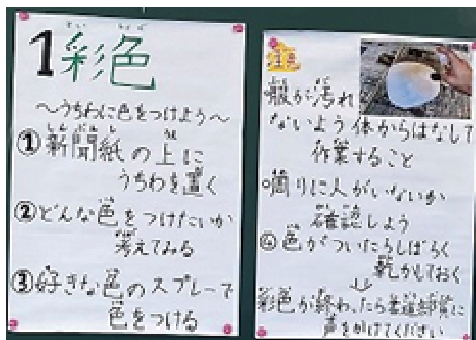 1彩色
さいしょく
～うちわに色をつけよう～
①新聞紙の上に
うちわを置く
②どんな色をつけたいか
考えてみる
③好きな色のスプレーで
色をつける
注意
服が汚れ
ないよう体からはなして
作業すること
周りに人がいないか
確認しよう
④色がついたらしばらく
乾かしておく
彩色が終わったら
声をかけてください